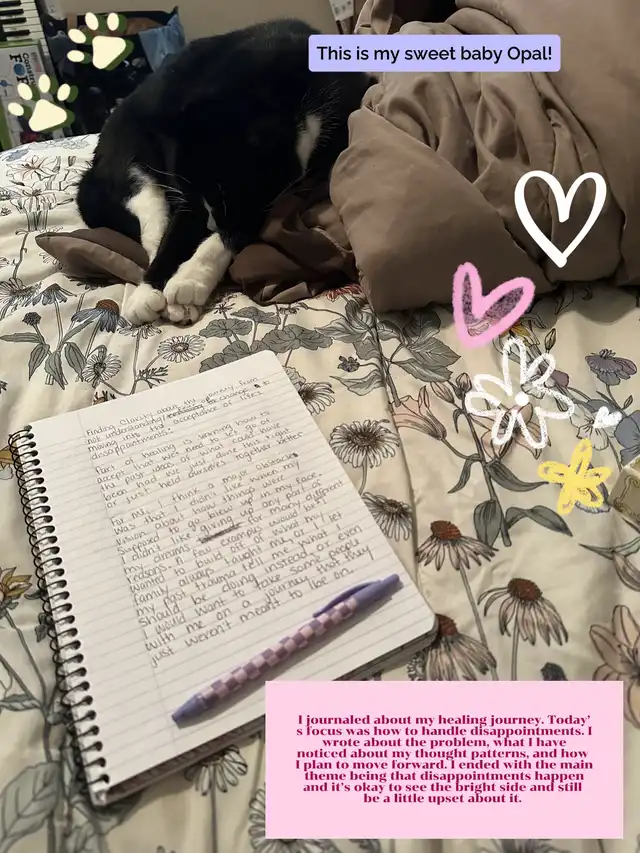 This is my sweet baby Opal!
Finding Clarity about the journey from
not understanding/ or coping to
moving into the acceptance of life's
disappointments:
Part of healing is learning how to
accept that we need to let go of
the past ideas of what could have
been had we just done this right
or just held ourselves together better
For me, I think a major obstacle
was that I didn't like when my
vision about how things were
supposed to go blew up in my face.
I didn't like giving up on part of
my dreams for many different
reasons. A few examples would be: I
wanted to build off of what my
family always taught me, or I let
my past trauma tell me what I
should be doing instead, or even
I would want to take some people
with me on a journey that they
just weren't meant to be on.
I journaled about my healing journey. Today'
s focus was how to handle disappointments. I
wrote about the problem, what I have
noticed about my thought patterns, and how
I plan to move forward. I ended with the main
theme being that disappointments happen
and it's okay to see the bright side and still
be a little upset about it.